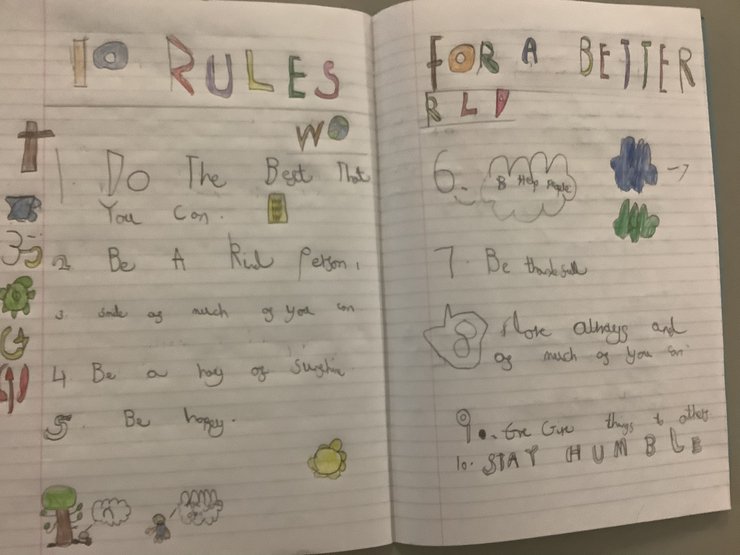 10 RULES
WO
1. Do The Best That
You Can.
2. Be A Kind person.
3. smile as much as you can
4 Be a ray of sunshine
5. Be happy.
FOR A BETTER
RLD
6. Help People
7. Be thankfull
8 always and
as much as you can
9. Give things to others
10. STAY HUMBLE